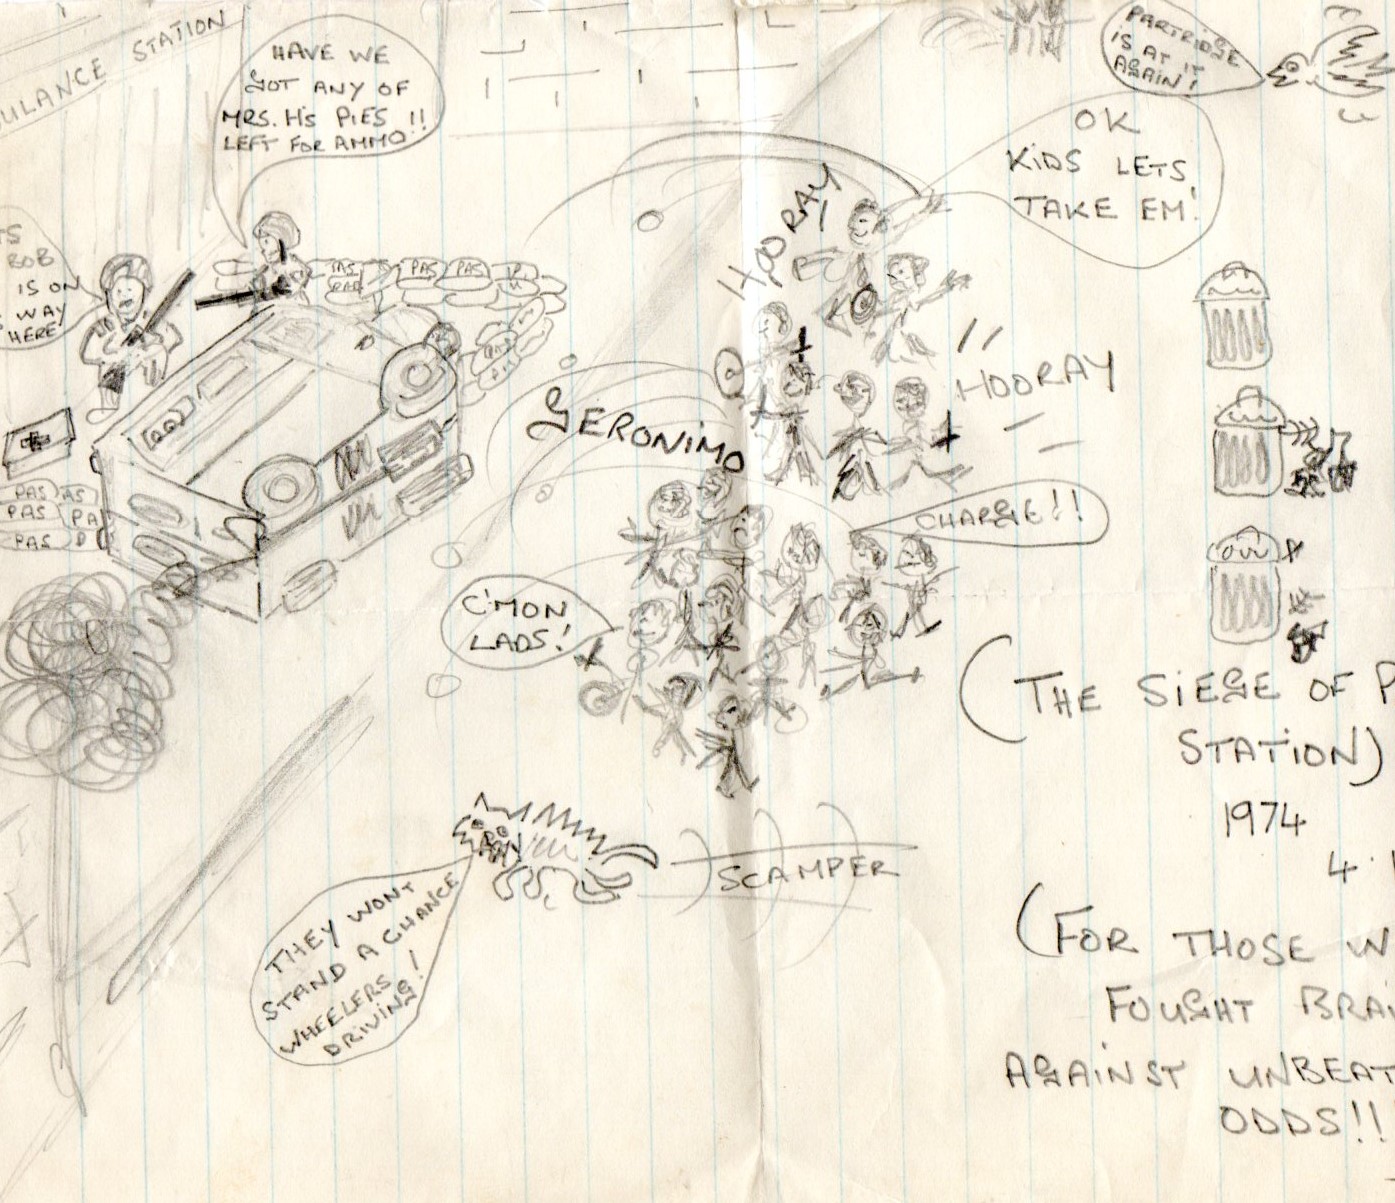 ULANCE STATION
HAVE WE
GOT ANY OF
MRS. H's PIES !!
LEFT FOR AMMO
TS
BOB
IS ON
WAY
HERE!
PARTRIDGE
IS AT IT
AGAIN!
OK
KIDS LETS
TAKE EM!
HOORAY!
HOORAY
GERONIMO
CHARGE!!
C'MON
LADS!
PAS
PAS PAS
PAS AS
PAS PA
PAS P
(THE SIEGE OF P
STATION)
1974
4.
SCAMPER
THEY WONT
STAND A CHANCE
WHEELERS !
DRIVING!
(FOR THOSE W
FOUGHT BRA
AGAINST UNBEAT
ODDS!!